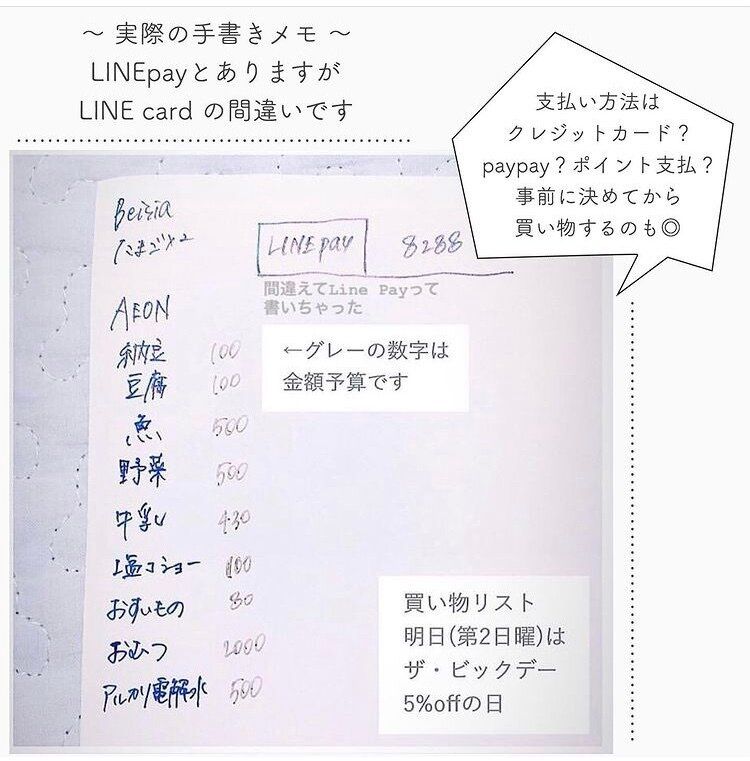 ～ 実際の手書きメモ ～
LINEpayとありますが
LINE card の間違いです
支払い方法は
クレジットカード？
paypay？ポイント支払？
事前に決めてから
買い物するのも◎
Beisia
たまご×2
LINE pay 8288
間違えてLine Payって
書いちゃった
AEON
納豆 100
豆腐 100
魚 500
野菜 500
牛乳 430
塩コショー 100
おすいもの 80
おむつ 2000
アルカリ電解水 500
←グレーの数字は
金額予算です
買い物リスト
明日(第2日曜)は
ザ・ビックデー
5%offの日